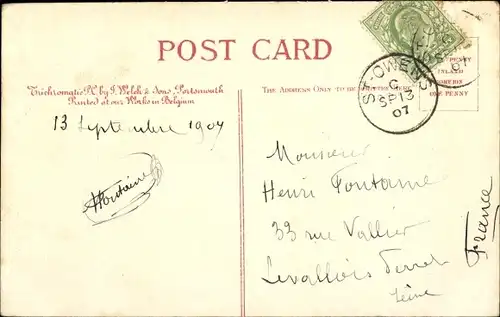 POST CARD
Trichromatic P.C. by J. Welch & Sons, Portsmouth
Printed at our Works in Belgium
THE ADDRESS ONLY TO BE WRITTEN HERE
PENNY
INLAND
ONE PENNY
ST. OWENS
C
SP 13
07
07
13 Septembre 1907
HFontaine
Monsieur
Henri Fontaine
33 rue Vallier
Levallois Perret
Seine
France